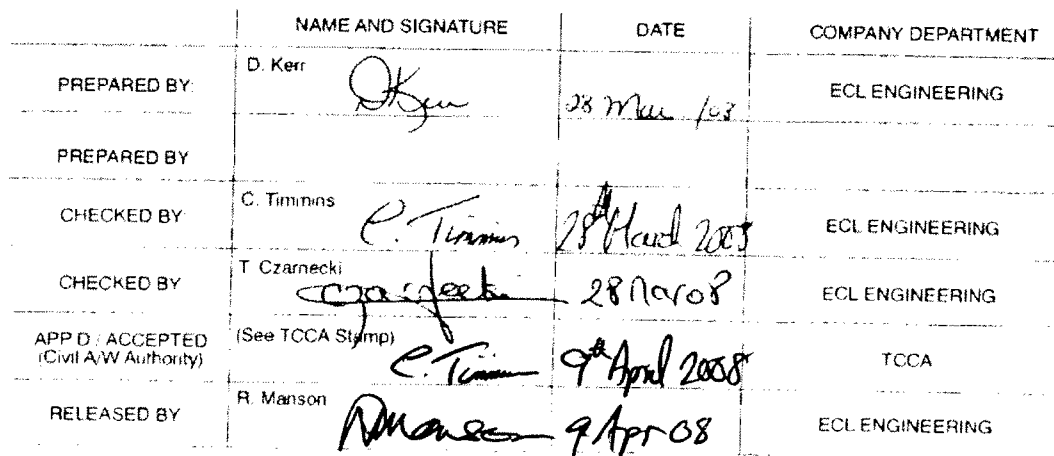 NAME AND SIGNATURE DATE COMPANY DEPARTMENT
PREPARED BY: D. Kerr DKerr 28 Mar /08 ECL ENGINEERING
PREPARED BY
CHECKED BY: C. Timmins C. Timmins 28th March 2008 ECL ENGINEERING
CHECKED BY T Czarnecki Czarnecki 28 Mar 08 ECL ENGINEERING
APP D / ACCEPTED (See TCCA Stamp) C. Timmins 9th April 2008 TCCA
(Civil A/W Authority)
RELEASED BY R. Manson RManson 9 Apr 08 ECL ENGINEERING